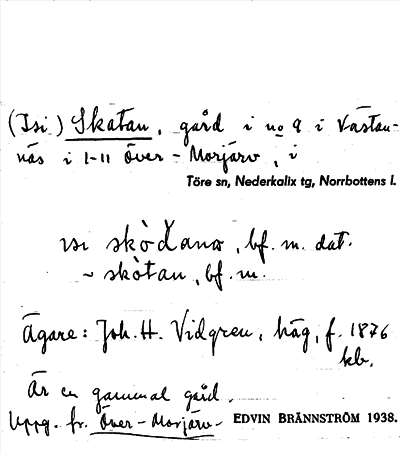 (Isi) Skatan, gård i no 9 i Västan-
näs i 1-11 Över-Morjärv, i
Töre sn, Nederkalix tg, Norrbottens l.
ɪsi bf. m. dat.
~ skòtan, bf. m.
Ägare: Joh. H. Vidgren, häg, f. 1876
kb.
Är en gammal gård.
Uppg. fr. Över-Morjärv- EDVIN BRÄNNSTRÖM 1938.